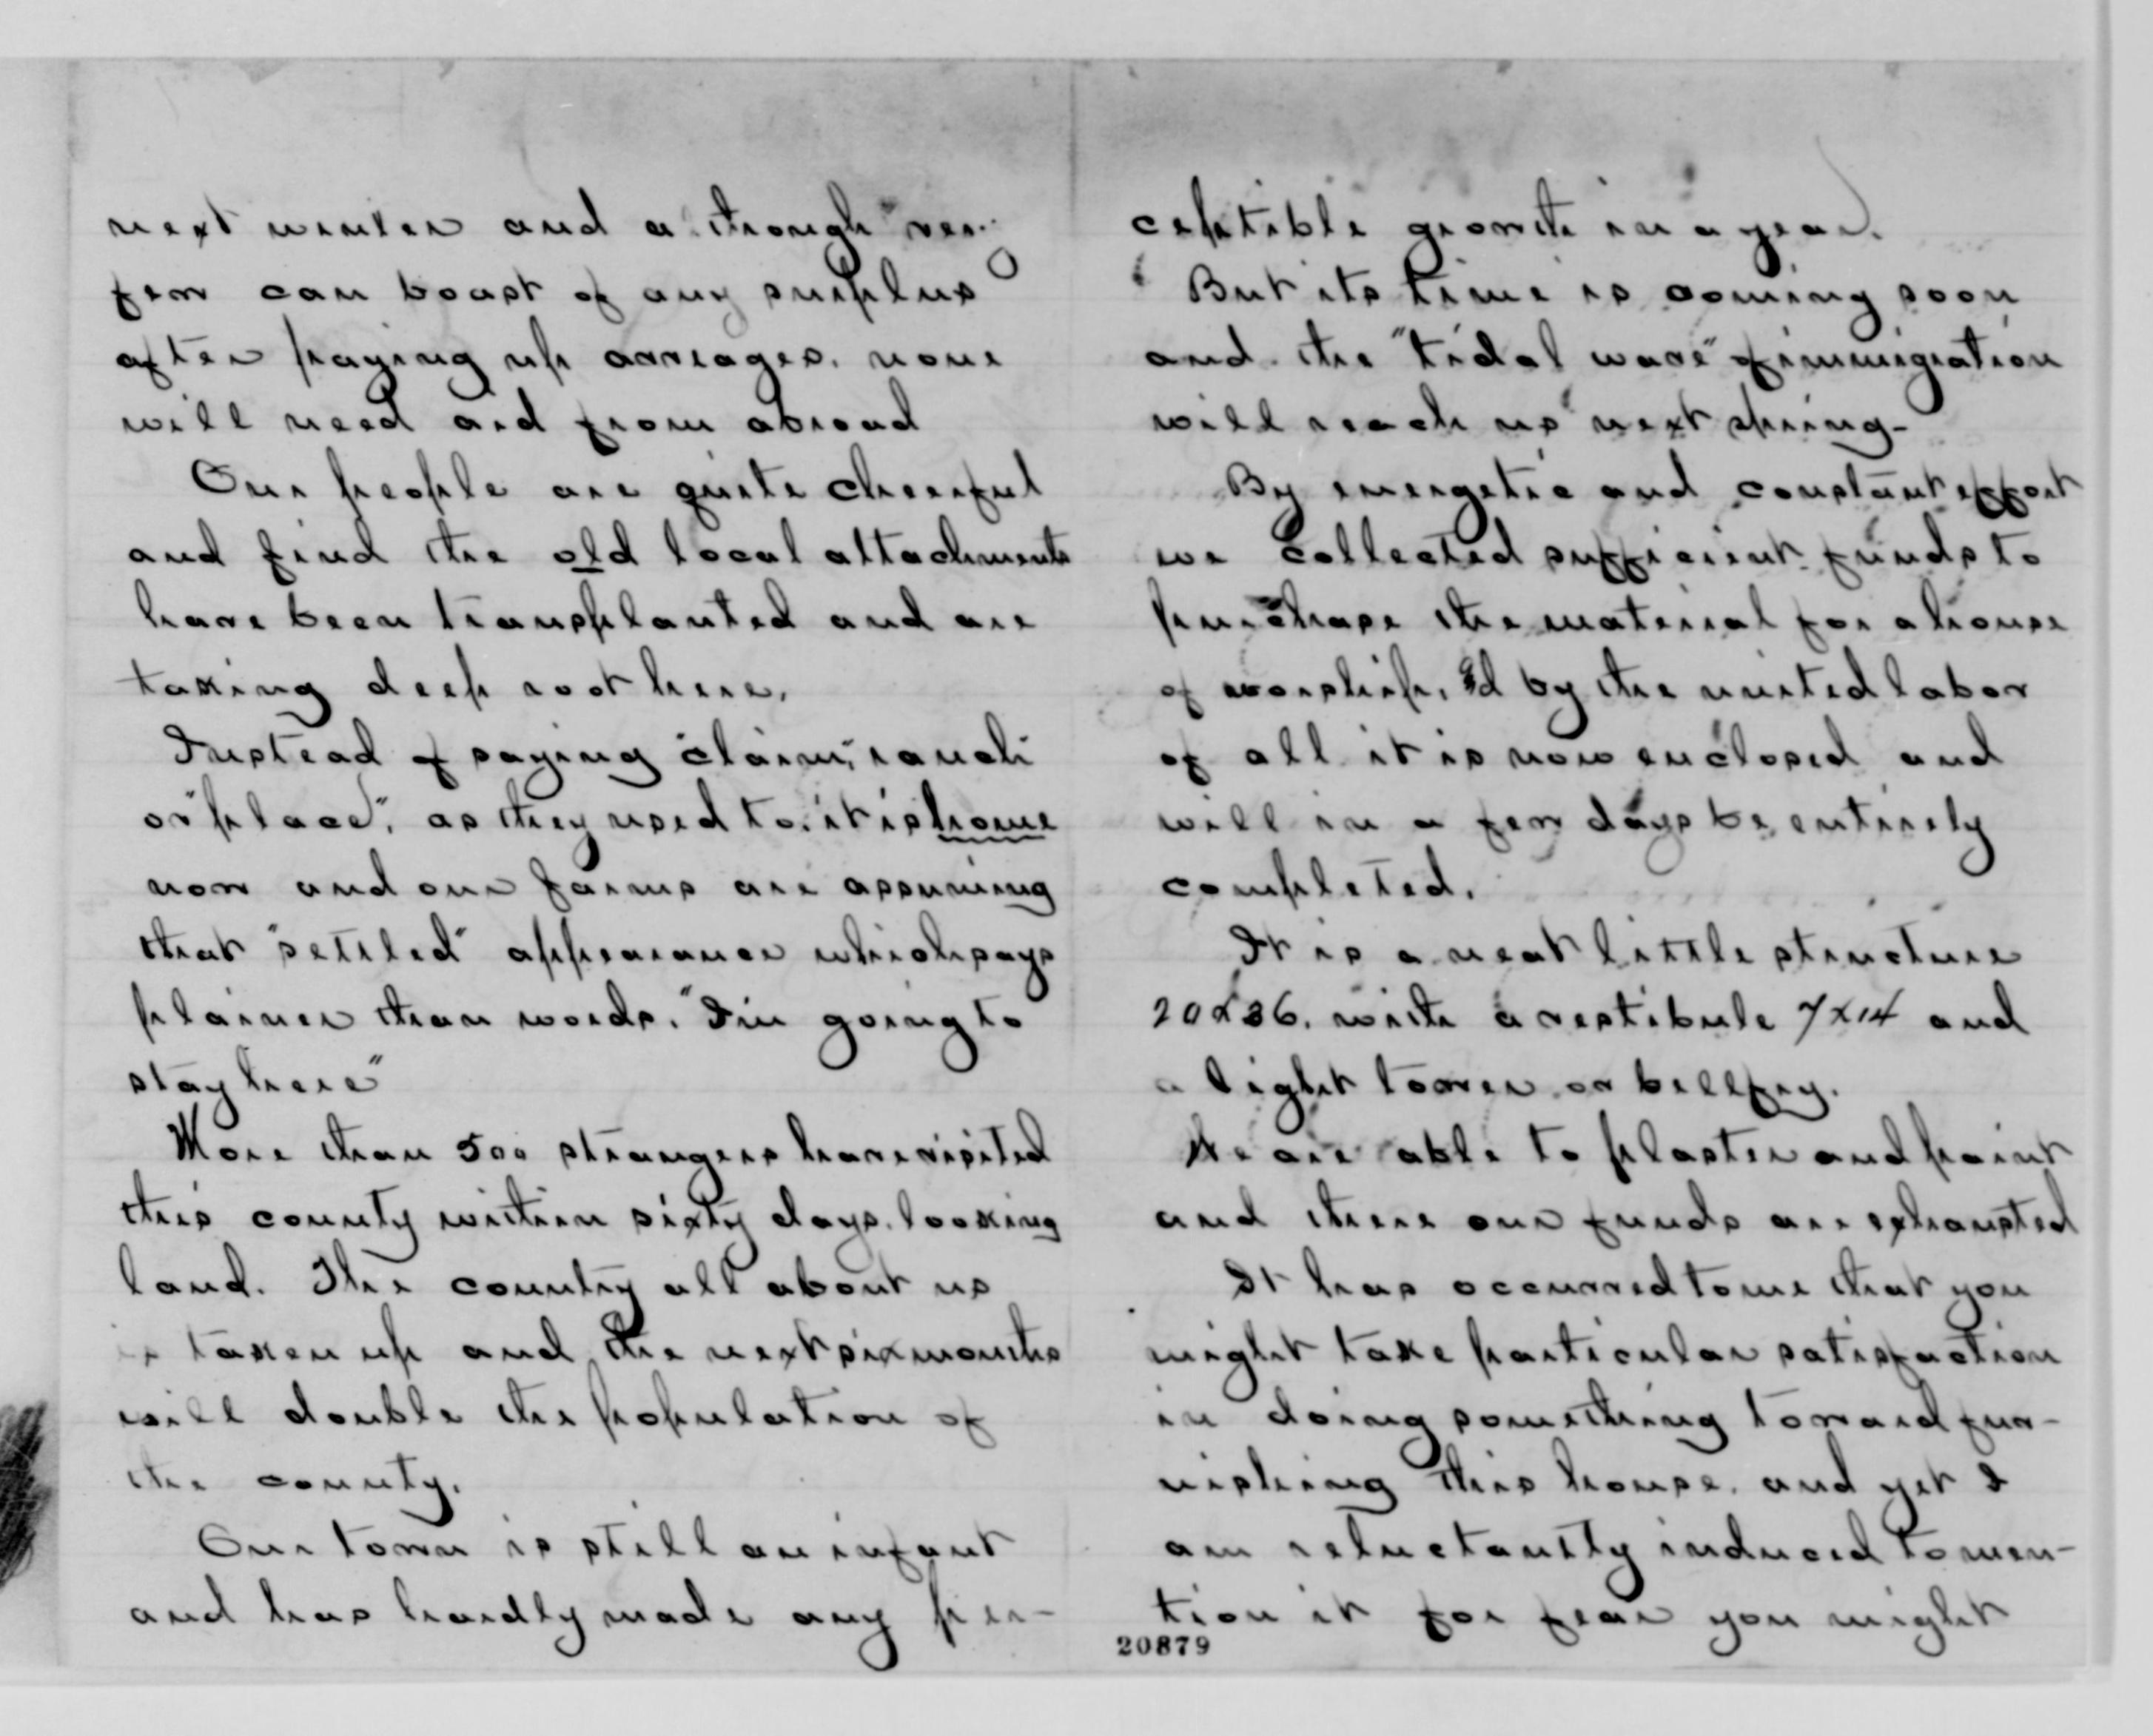 next winter and although very
few can boast of any surplus
after paying up arreages, none
will need aid from abroad
Our people are quite cheerful
and find the old local attachments
have been transplanted and are
taking deep root here,
Instead of saying "claim," ranch
or "place", as they used to, it is home
now and our farms are assuming
that "settled" appearance which says
plainer than words, "I'm going to
stay here"
More than 500 strangers have visited
this county within sixty days, looking
land. The country all about us
is taken up and the next six months
will double the population of
the county.
Our town is still an infant
and has hardly made any per-
ceptible growth in a year.
But its time is coming soon
and the "tidal wave" of immigration
will reach us next spring-
By energetic and constant effort
we collected sufficient funds to
purchase the material for a house
of worship, &d by the united labor
of all it is now enclosed and
will in a few days be entirely
completed.
It is a neat little structure
20x36, with a vestibule 7x14 and
a light tower or bellfry.
We are able to plaster and paint
and there our funds are exhausted
It has occurred to me that you
might take particular satisfaction
in doing something toward fur-
nishing this house, and yet I
am reluctantly induced to men-
tion it for fear you might
20879